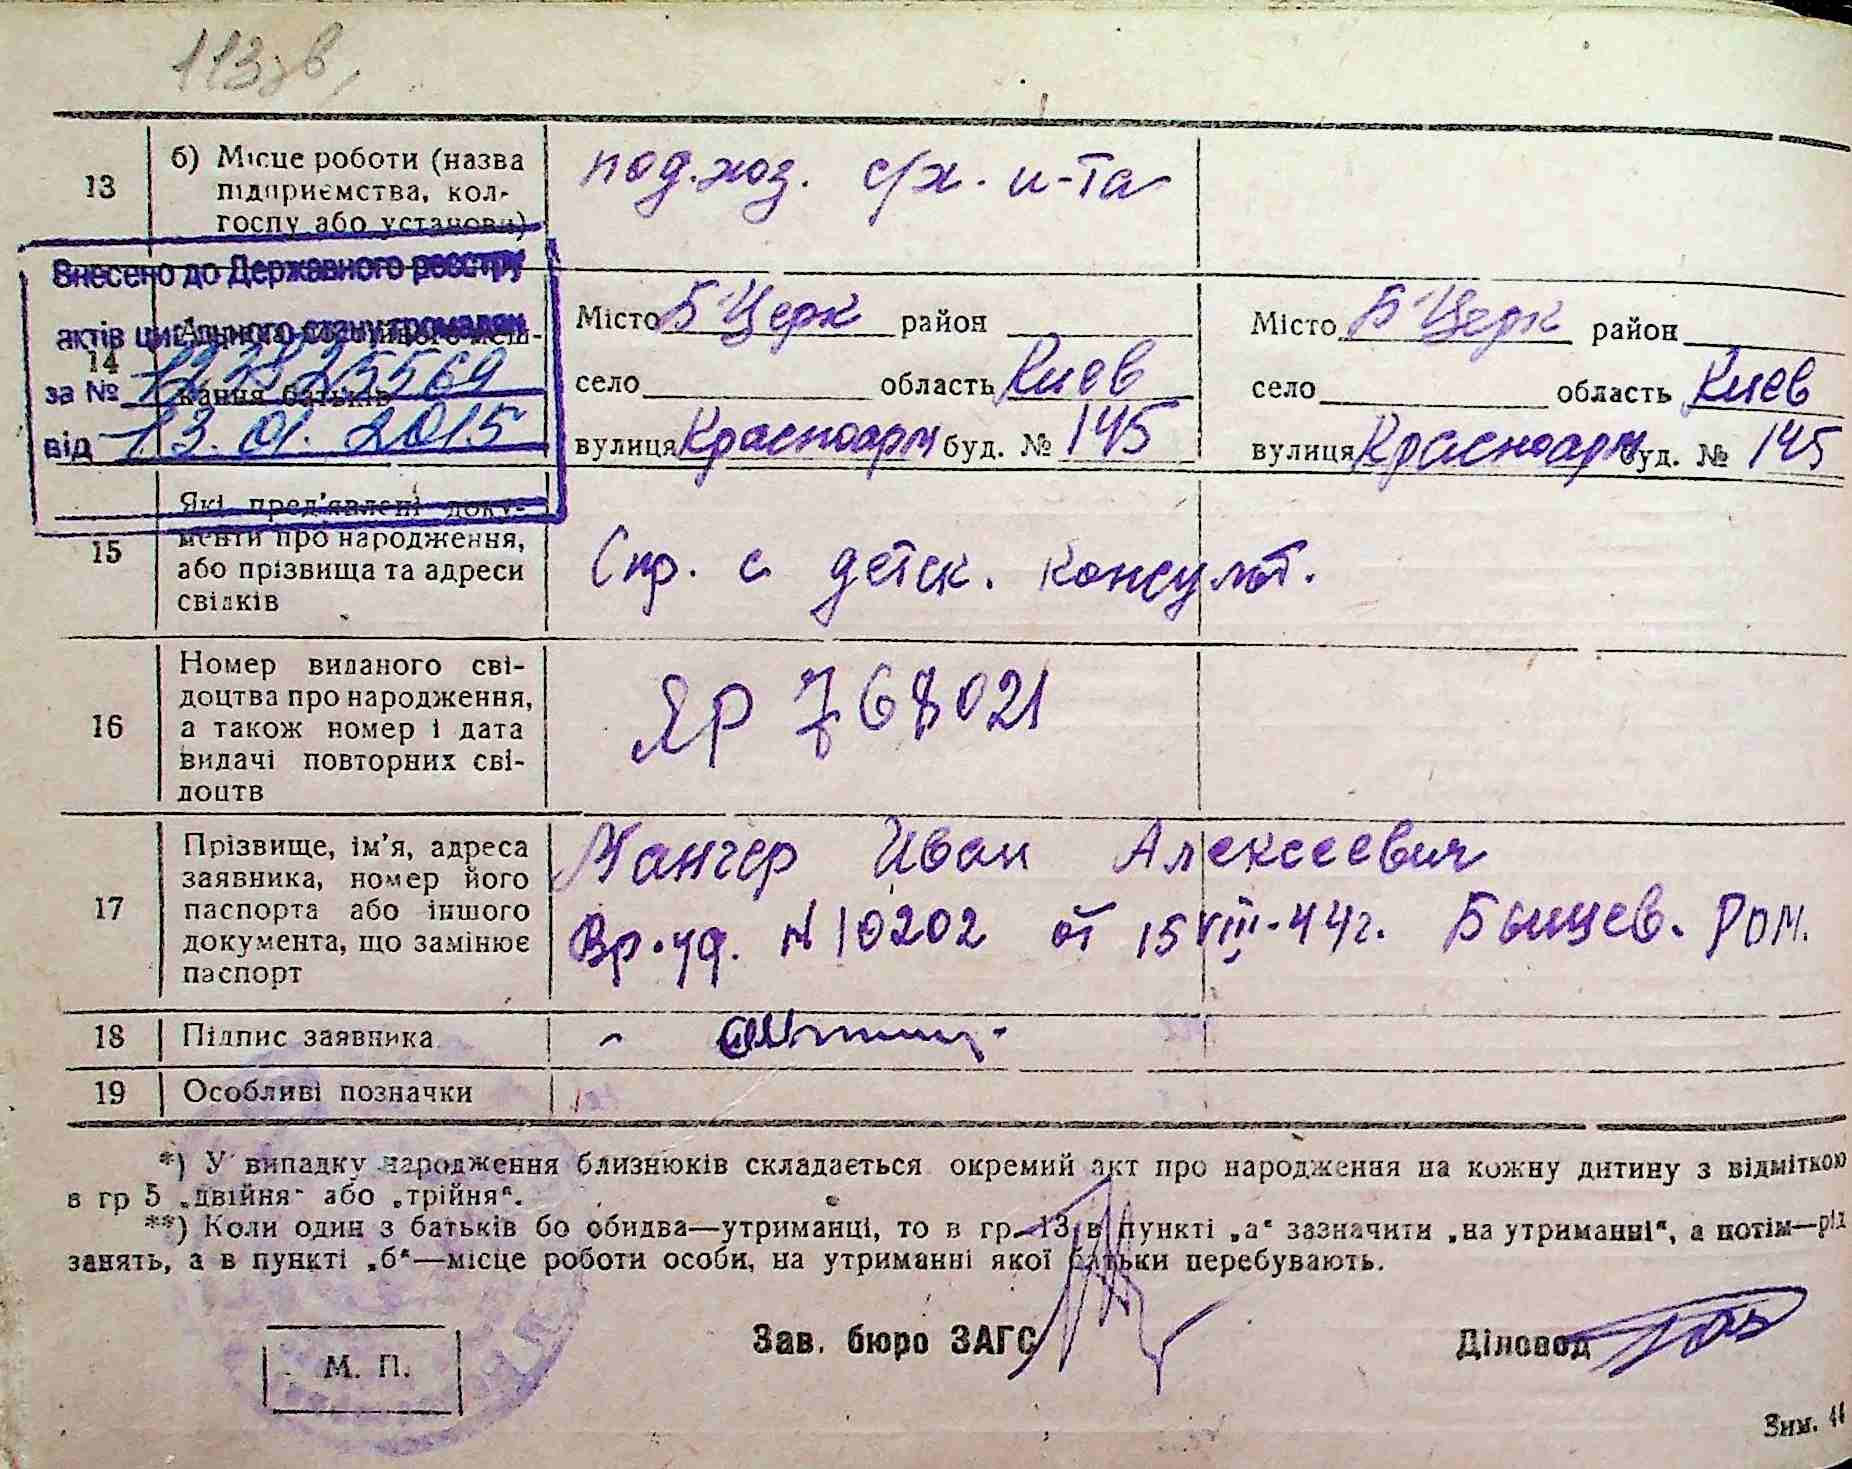 113 зв.
13
б) Місце роботи (назва
підприємства, кол-
госпу або установи)
под.хоз. с/х. и-та
Внесено до Державного реєстру
актів цивільного стану громадян
за №
від 13.01.2015
14
кання батьків
Місто Б Церк район
село область Киев
вулиця Красноарм буд. № 145
Місто Б Церк район
село область Киев
вулиця Красноарм буд. № 145
15
Які пред'явлені доку-
менти про народження,
або прізвища та адреси
свідків
Спр. с детск. консульт.
16
Номер виданого сві-
доцтва про народження,
а також номер і дата
видачі повторних сві-
доцтв
ЯР 768021
17
Прізвище, ім'я, адреса
заявника, номер його
паспорта або іншого
документа, що замінює
паспорт
Мангер Иван Алексеевич
Вр.уд. № 10202 от 15 VIII-44г. Бышев. РОМ.
18 Підпис заявника
19 Особливі позначки
*) У випадку народження близнюків складається окремий акт про народження на кожну дитину з відміткою
в гр 5 „двійня" або „трійня".
**) Коли один з батьків бо обидва—утриманці, то в гр 13 в пункті „а" зазначити „на утриманні", а потім—рід
занять, а в пункті „б"—місце роботи особи, на утриманні якої батьки перебувають.
Зав. бюро ЗАГС
Діловод
М. П.
Зим.